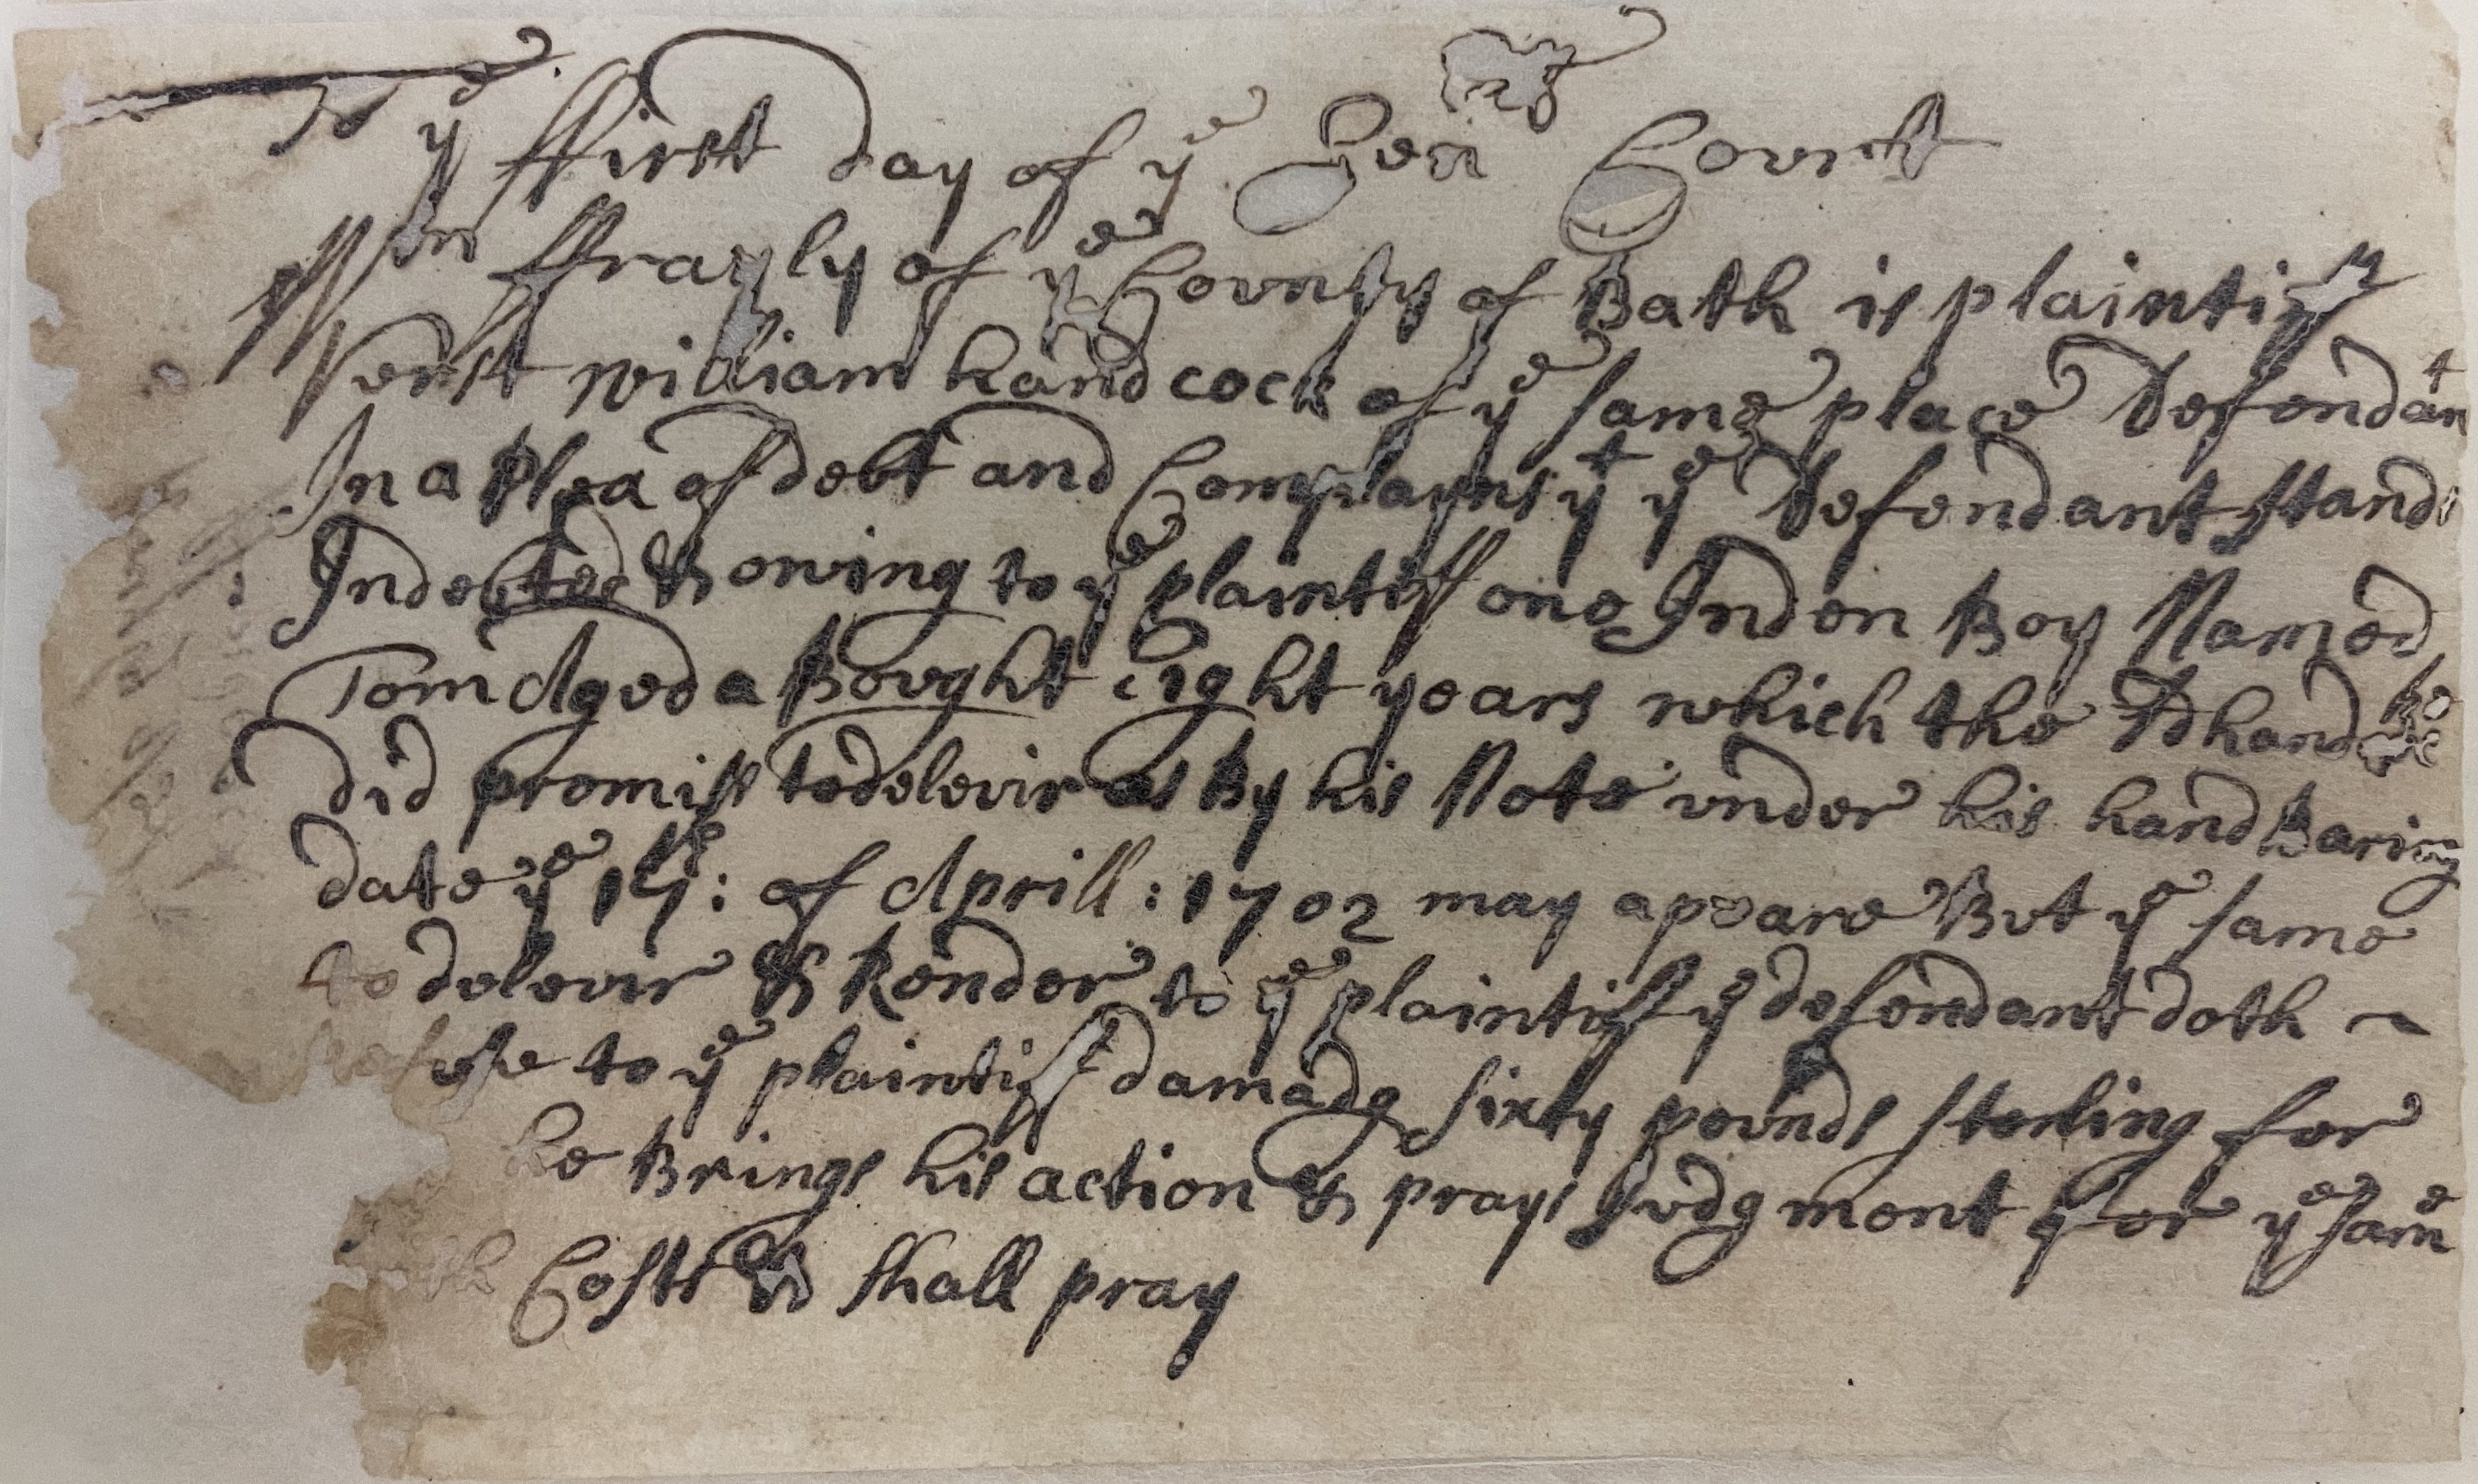 To
ye ffirst day of ye Genall Court
Wm ffrayly of ye County of Bath is plaintiff
Verst william handcock of ye same place Defendant
In a Plea of debt and Complayns yt ye Defendant stands
Indebted & owing to ye plaintiff one Inden Boy Named
Tom Aged a Bought Eight years which the sd hand
did promiss to delevir as By his Note under his hand Baring
date ye 17: of Aprill: 1702 may apeare But ye same
to delevir & Render to ye plaintiff ye defendant doth
Refuse to ye plaintiff damadg sixty pounds sterling for
he Brings his action & prays Judgment for ye same
Costs & shall pray